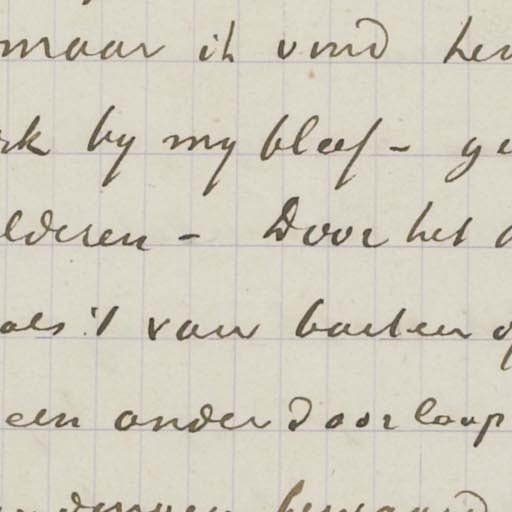 maar ik vind he
rk by my bleef - ge
lderen - Door het
als 't van buiten
een onder doorloop